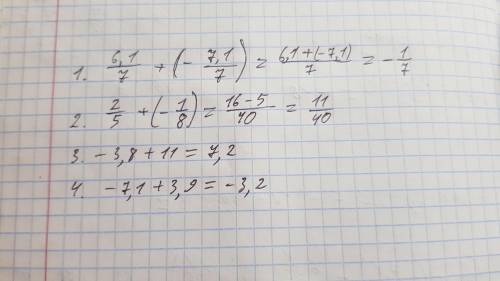 1. 6,1/7 + (- 7,1/7) = 6,1+(-7,1)/7 = - 1/7
2. 2/5 + (- 1/8) = 16-5/40 = 11/40
3. -3,8 + 11 = 7,2
4. -7,1 + 3,9 = -3,2